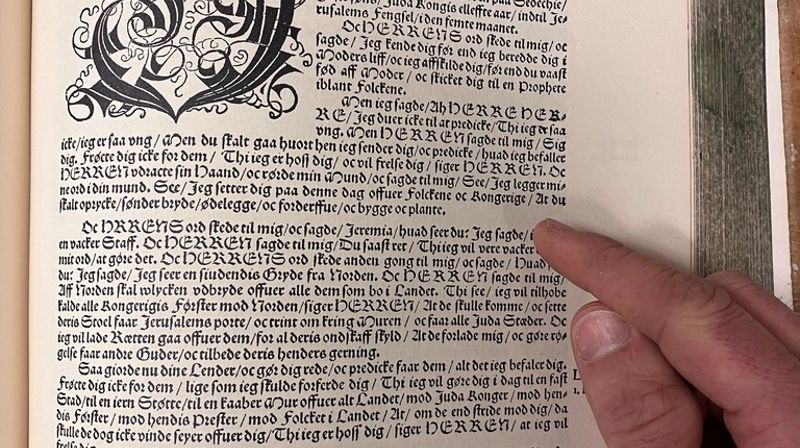 Juda Kongis elleffte aar/ indtil Je-
rusalems Fengsel/ i den femte maanet.
Oc HERRENS ord skede til mig/ oc
sagde/ Jeg kende dig før end ieg beredde dig i
Moders liff/ oc ieg affskilde dig/ førend du vaast
fød aff Moder/ oc skicket dig til en Prophete
iblant Folckene.
Men ieg sagde/ Ah HERRE HER-
RE/ Jeg duer icke til at predicke/ Thi ieg er saa
vng. Men HERREN sagde til mig/ Sig
icke/ ieg er saa vng/ Men du skalt gaa huort hen ieg sender dig/ oc predicke/ huad ieg befaller
dig. Frøcte dig icke for dem/ Thi ieg er hoss dig/ oc vil frelse dig/ siger HERREN. Oc
HERREN vdracte sin Haand/ oc rørde min Mund/ oc sagde til mig/ See/ Jeg legger mi-
ne ord i din mund. See/ Jeg setter dig paa denne dag offuer Folckene oc Kongerige/ At du
skalt oprycke/ sønder bryde/ ødelegge/ oc forderffue/ oc bygge oc plante.
Oc HRRENS ord skede til mig/ oc sagde/ Jeremia/ huad seer du? Jeg sagde/
en vacker Staff. Oc HERREN sagde til mig/ Du saast ret/ Thi ieg vil vere vacker
mit ord/ at gøre det. Oc HERRENS ord skede anden gong til mig/ oc sagde/ Huad
du? Jeg sagde/ Jeg seer en siudendis Gryde fra Norden. Oc HERREN sagde til mig/
Aff Norden skal wlycken vdbryde offuer alle dem som bo i Landet. Thi see/ ieg vil tilhobe
kalde alle Kongerigis Førster mod Norden/ siger HERREN/ At de skulle komme/ oc sette
deris Stoel faar Jerusalems porte/ oc trint om kring Muren/ oc faar alle Juda Stæder. Oc
ieg vil lade Rætten gaa offuer dem/ for al deris ondskaff skyld/ At de forlade mig/ oc gøre rø-
gelse faar andre Guder/ oc tilbede deris henders gerning.
Saa giorde nu dine Lender/ oc gør dig rede/ oc predicke faar dem/ alt det ieg befaler dig.
Frøcte dig icke for dem/ lige som ieg skulde forferde dig/ Thi ieg vil gøre dig i dag til en fast
Stad/ til en iern Støtte/ til en kaaber Mur offuer alt Landet/ mod Juda Konger/ mod hen-
dis Førster/ mod hendis Prester/ mod Folcket i Landet/ At/ om de end stride mod dig/ da
skulle de dog icke vinde seyer offuer dig/ Thi ieg er hoss dig/ siger HERREN/ at ieg vil